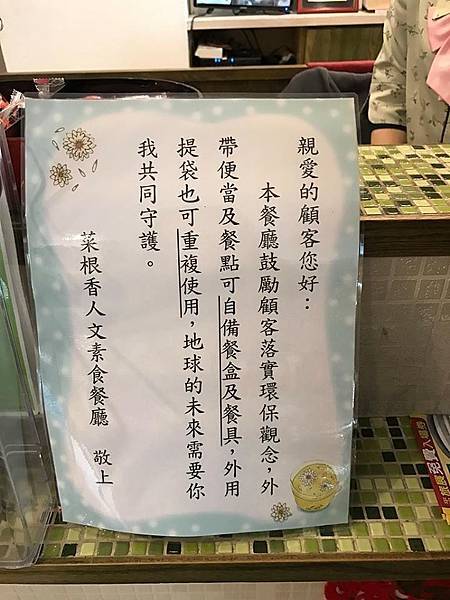 親愛的顧客您好：
本餐廳鼓勵顧客落實環保觀念，外
帶便當及餐點可自備餐盒及餐具，外用
提袋也可重複使用，地球的未來需要你
我共同守護。
菜根香人文素食餐廳 敬上
免費入場